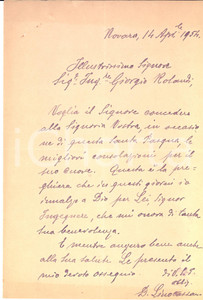 Novara, 14 Aprile 1954
Illustrissimo Signore
Sig. Ing.re Giorgio Rolandi.
Voglia il Signore concedere
alla Signoria Vostra, in occasio
ne di questa Santa Pasqua, le
migliori consolazioni per il
suo cuore. Questa è la pre
ghiera che in questi giorni io
innalzo a Dio per Lei, Signor
Ingegnere, che mi onora di tanta
sua benevolenza.
E mentre auguro bene anche
alla sua salute. Le presento il
mio devoto ossequio